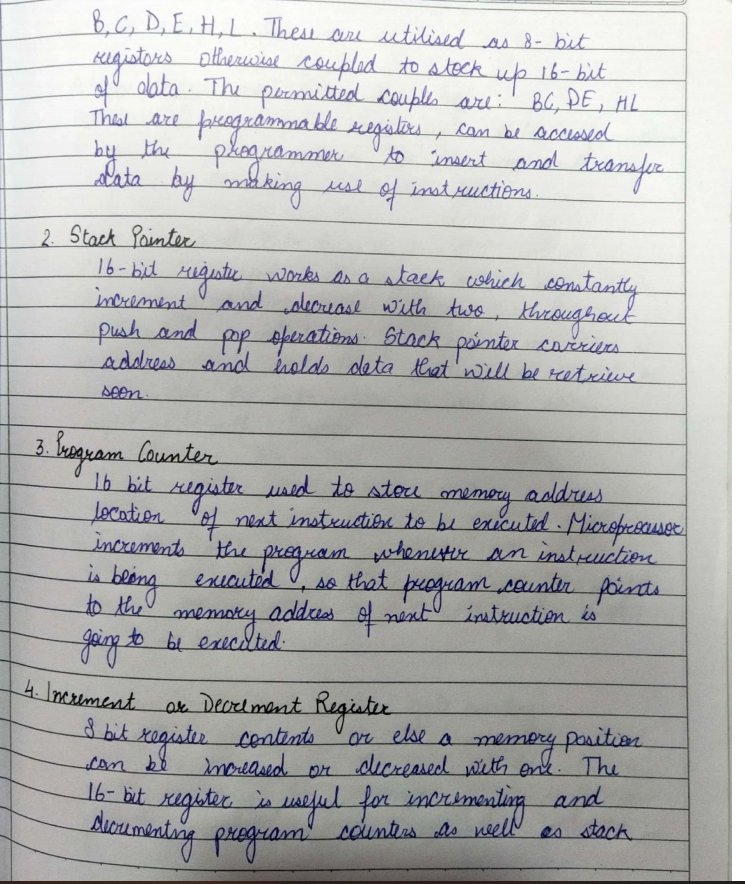 B, C, D, E, H, L. These are utilised as 8-bit
registors otherwise coupled to stock up 16-bit
of data. The permitted couples are: BC, DE, HL
These are programmable registers, can be accessed
by the programmer to insert and transfer
data by making use of instructions.
2. Stack Pointer
16-bit register works as a stack which constantly
increment and decrease with two, throughout
push and pop operations. Stack pointer carriers
address and holds data that will be retrieve
soon.
3. Program Counter
16 bit register used to store memory address
location of next instruction to be executed. Microprocessor
increments the program whenever an instruction
is being executed, so that program counter points
to the memory address of next instruction is
going to be executed.
4. Increment or Decrement Register
8 bit register contents or else a memory position
can be increased or decreased with one. The
16-bit register is useful for incrementing and
decrementing program counters as well as stack